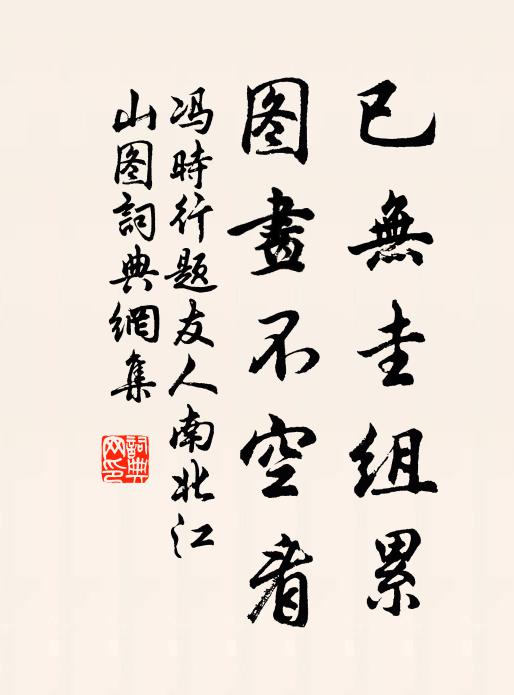 已無圭組累
图畫不空看
冯時行题友人南北江
山图詞典網集
詞典
网印